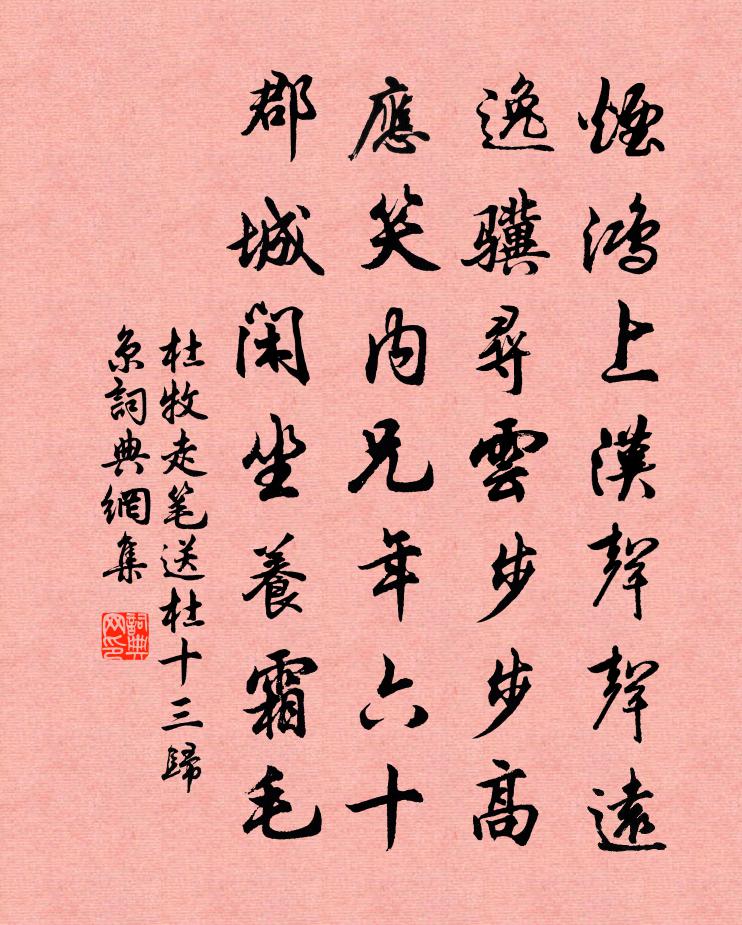 煙鴻上漢聲聲遠
逸驥尋雲步步高
應笑內兄年六十
郡城閑坐養霜毛
杜牧走笔送杜十三歸
京詞典網集
詞典
网印